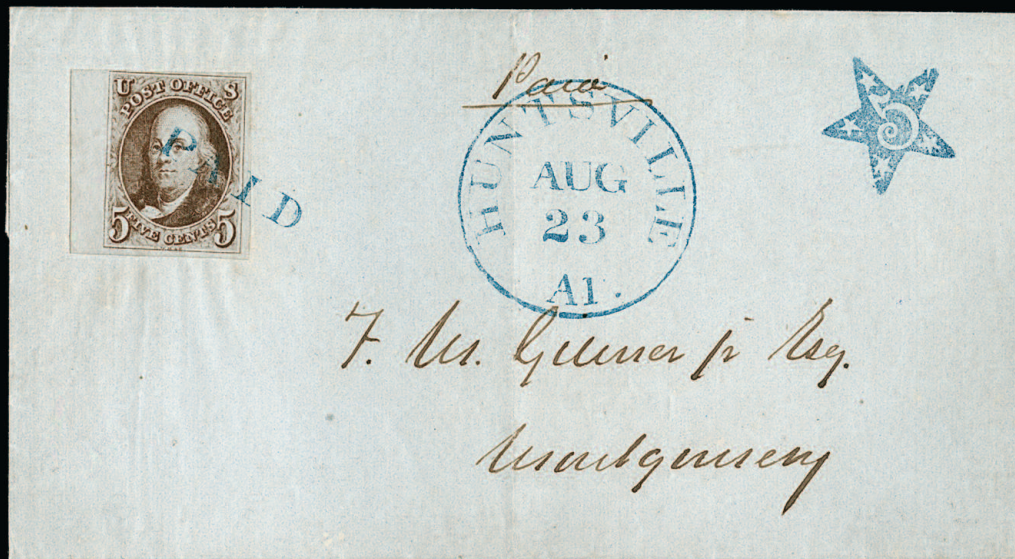 U S
POST OFFICE
5 FIVE CENTS 5
PAID
Paid
HUNTSVILLE
AUG
23
Al.
5
F. M. Gilmer jr Esq.
Montgomery